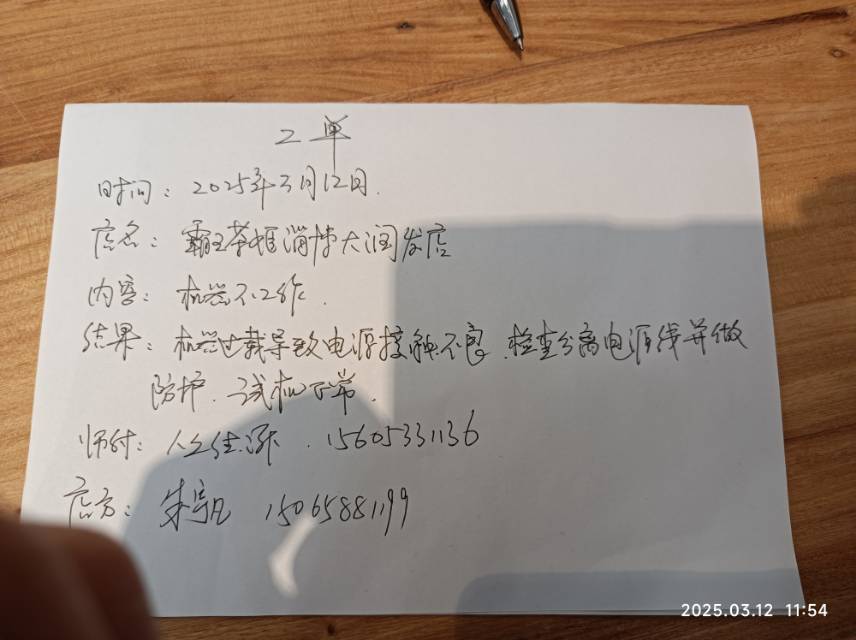 工单
时间：2025年3月12日.
店名：霸王茶姬淄博大润发店
内容：机器不工作.
结果：机器过载导致电源接触不良.检查分离电源线并做
防护.试机正常.
师付： 15605331136
店方：朱宇凡 15065881199
2025.03.12 11:54